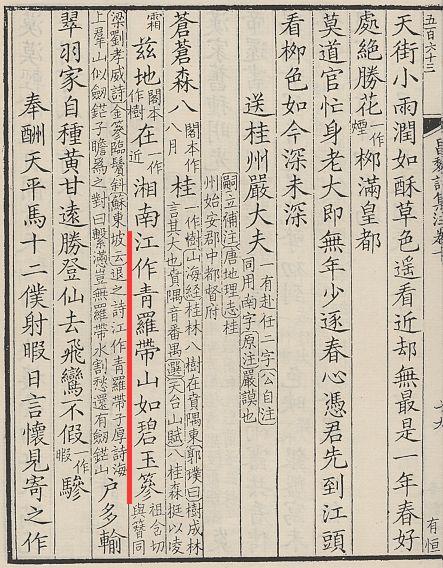 五百六十三
昌黎詩集注卷十
有恒
天街小雨潤如酥草色遥看近却無最是一年春好
處絶勝花一作煙柳滿皇都
莫道官忙身老大即無年少逐春心憑君先到江頭
看柳色如今深未深
送桂州嚴大夫一有赴任二字公自注
同用南字原注嚴謨也
嗣立補注唐地理志桂
州始安郡中都督府
蒼蒼森八閣本作八月桂一作樹山海經桂林八樹在賁隅東郭璞曰樹成林
言其大也賁隅音番禺選天台山賦八桂森挺以凌
霜兹地閣本作樹在一作近湘南江作青羅帶山如碧玉篸祖含切與簪同
梁劉孝威詩金篸臨鬢斜蘇東坡云退之詩江作青羅帶子厚詩海
上羣山似劒鋩子瞻為之對曰繫懣豈無羅帶水割愁還有劒鋩山戶多輸
翠羽家自種黄甘遠勝登仙去飛鸞不假一作暇驂
奉酬天平馬十二僕射暇日言懷見寄之作